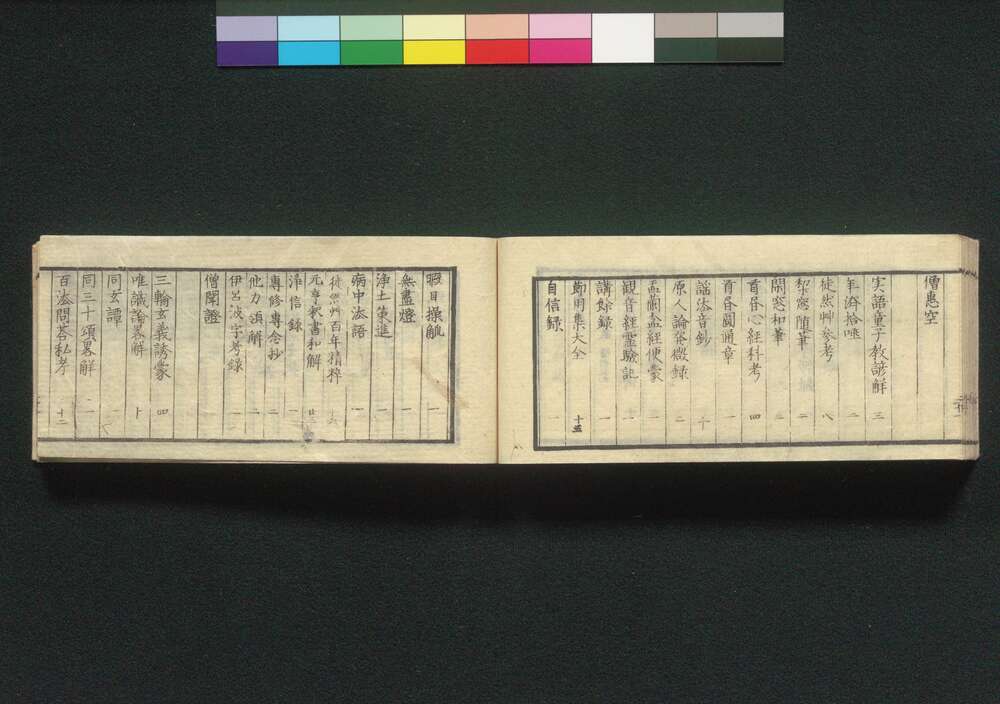 僧惠空
実語童子教諺解 三
年濟拾唾 二
徒然艸参考 八
梨窓随筆 二
閑窓和筆 一
首咎心經科考 四
首咎圓通章 一
謡法音鈔 十
原人論發微録 二
盂蘭盆經使蒙 一
観音經靈驗記 二
講餘録 一
節用集大全 十五
自信録 一
暇日操觚 一
無盡燈 一
浄土策進 一
病中法語 一
徒然艸百年精粋 六
元亨釈書和解
浄信録 一
專修專念抄 二
他力領解 二
伊呂波字考録 一
僧聞證
三輪玄義誘蒙 四
唯識論畧解 十
同玄譚 一
同三十頌畧解 二
百法問答私考 十二